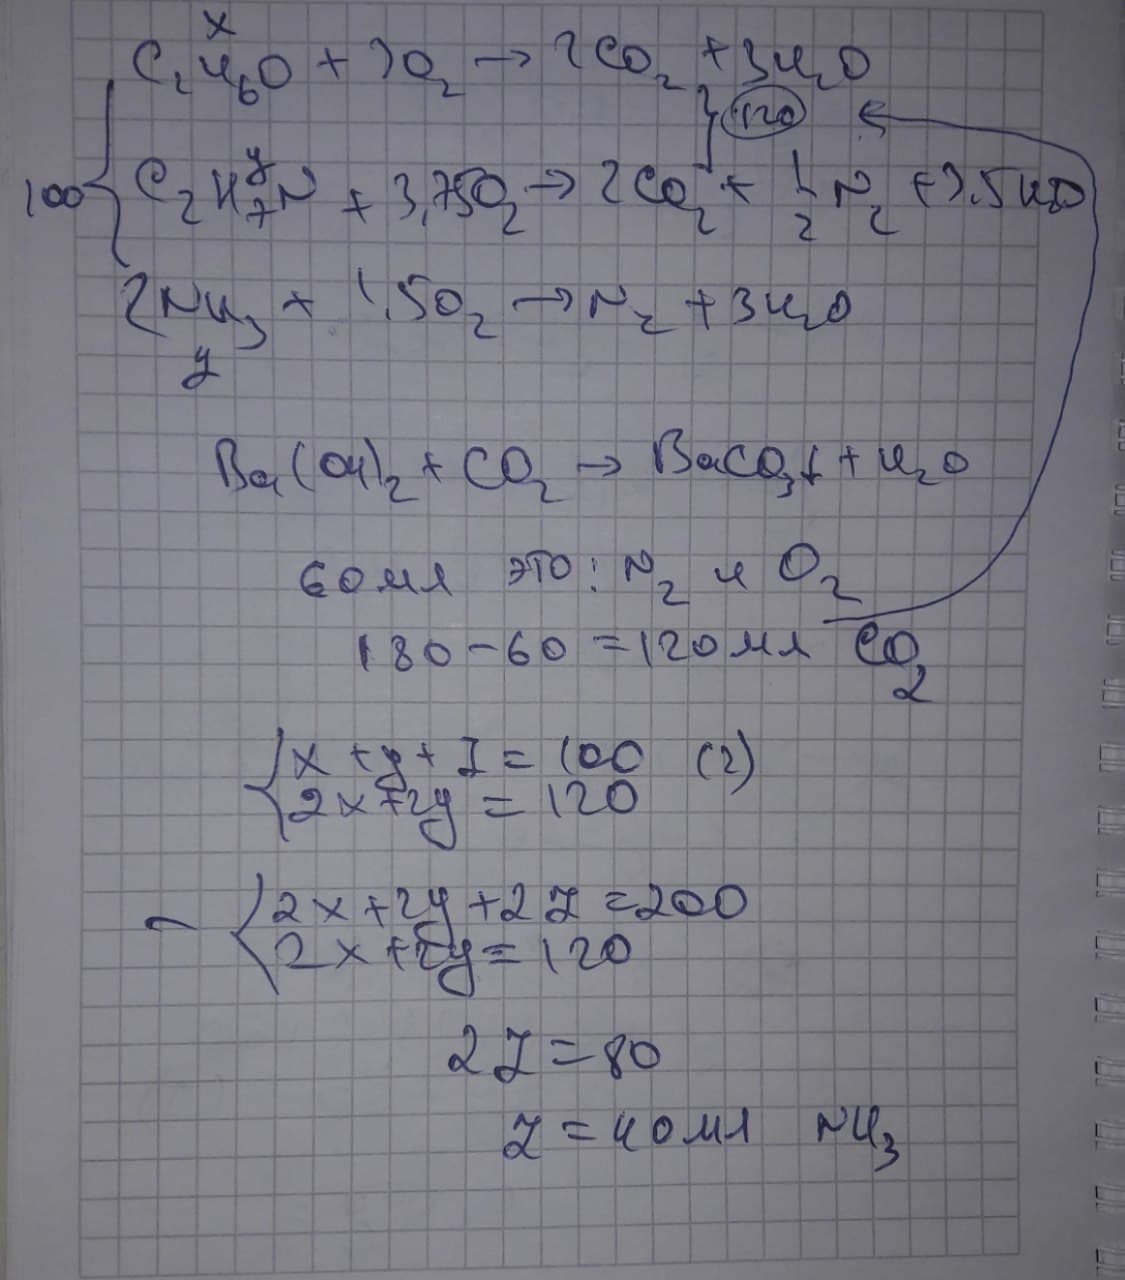 x
C₂H₆O + 3O₂ → 2CO₂ + 3H₂O
120
y
100 C₂H₇N + 3,75O₂ → 2CO₂ + 1/2 N₂ + 3.5H₂O
2NH₃ + 1,5O₂ → N₂ + 3H₂O
y
Ba(OH)₂ + CO₂ → BaCO₃↓ + H₂O
60 мл это: N₂ и O₂
180 - 60 = 120 мл CO₂
x + y + z = 100 (2)
2x + 2y = 120
- 2x + 2y + 2z = 200
2x + 2y = 120
2z = 80
z = 40 мл NH₃